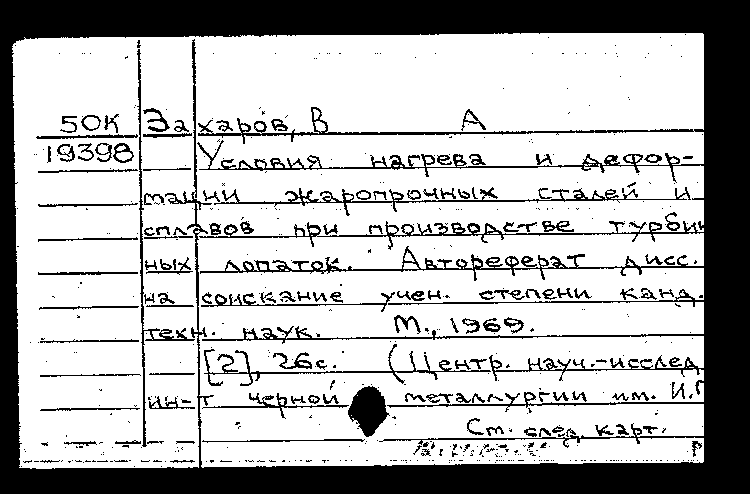 50К Захаров, В А
19398 Условия нагрева и дефор-
мации жаропрочных сталей и
сплавов при производстве турбин
ных лопаток. Автореферат дисс.
на соискание учен. степени канд.
техн. наук. М., 1969.
[2], 26с. (Центр. науч.-исслед
ин-т черной металлургии им. И.П
См. след. карт.
Р